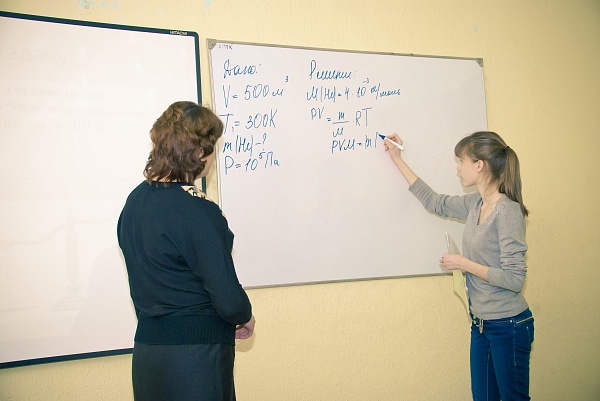 HITACHI
Дано:
V = 500 м³
T₁ = 300К
m(He) - ?
P = 10⁵ Па
Решение:
M(He) = 4 · 10⁻³ кг/моль
PV = m/M RT
PVM = m